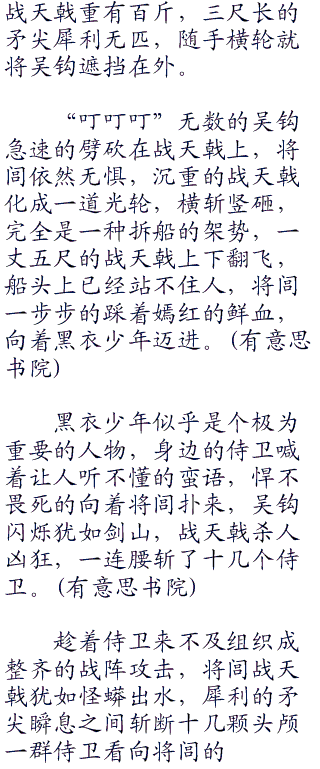 战天戟重有百斤，三尺长的
矛尖犀利无匹，随手横轮就
将吴钩遮挡在外。
“叮叮叮”无数的吴钩
急速的劈砍在战天戟上，将
闾依然无惧，沉重的战天戟
化成一道光轮，横斩竖砸，
完全是一种拆船的架势，一
丈五尺的战天戟上下翻飞，
船头上已经站不住人，将闾
一步步的踩着嫣红的鲜血，
向着黑衣少年迈进。(有意思
书院)
黑衣少年似乎是个极为
重要的人物，身边的侍卫喊
着让人听不懂的蛮语，悍不
畏死的向着将闾扑来，吴钩
闪烁犹如剑山，战天戟杀人
凶狂，一连腰斩了十几个侍
卫。(有意思书院)
趁着侍卫来不及组织成
整齐的战阵攻击，将闾战天
戟犹如怪蟒出水，犀利的矛
尖瞬息之间斩断十几颗头颅
一群侍卫看向将闾的